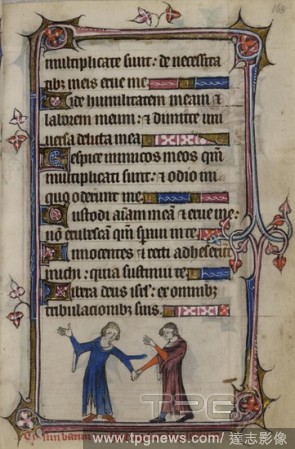 168
multiplicate sunt: de necessita
tibz meis erue me
Vide humilitatem meam &
laborem meum: & dimitte uni
uersa delicta mea
Respice inimicos meos qm̄
multiplicati sunt: & odio ini
quo oderunt me
Custodi aīam meā & erue me:
nō erubescā qm̄ speraui in te
Innocentes & recti adheserūt
michi: quia sustinui te
Libera deus isrl: ex omnibz
tribulacionibus suis
TPG
www.tpgnews.com/ 達志影像